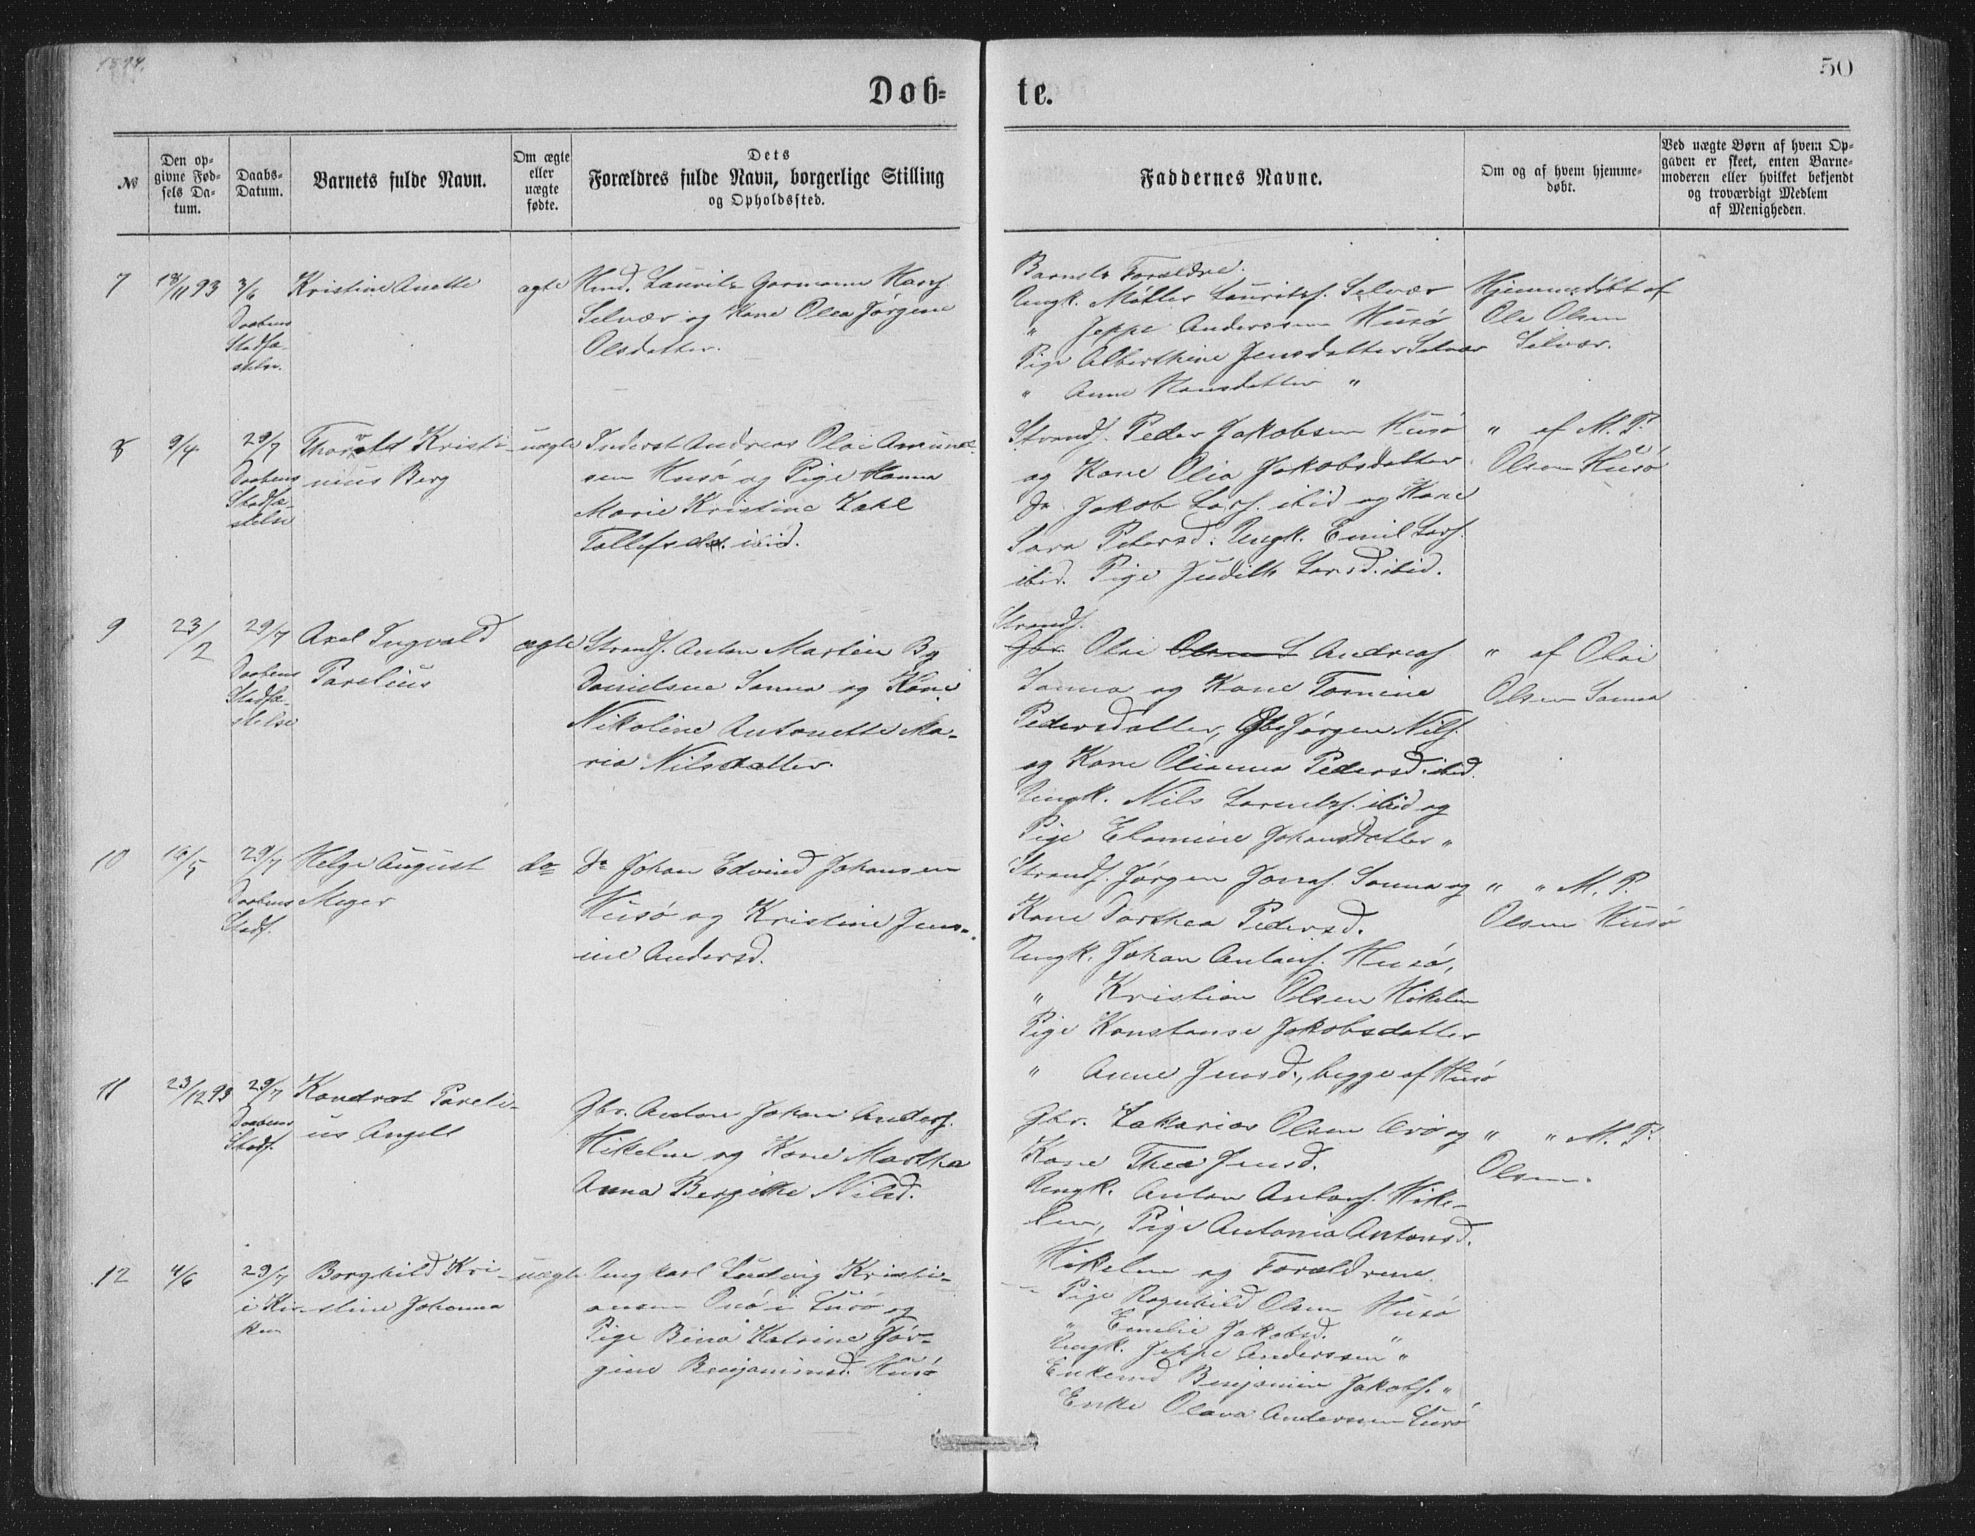 1894.
50
Døb-
te.
№
Den op-
givne Fød-
sels Da-
tum.
Daabs-
Datum.
Barnets fulde Navn.
Om ægte
eller
uægte
fødte.
Dets
Forældres fulde Navn, borgerlige Stilling
og Opholdssted.
Faddernes Navne.
Om og af hvem hjemme-
døbt.
Ved uægte Børn af hvem Op-
gaven er skeet, enten Barne-
moderen eller hvilket bekjendt
og troværdigt Medlem
af Menigheden.
7
18/11 93
3/6
Daabens
Stadfæ-
stelse.
Kristine Anette
ægte
Hmd. Laurits Hansf.
Selvær og Kone Olea Jørgine
Olsdatter.
Barnets Forældre.
Ungk. Møller Lauritsf. Selvær
" Jeppe Anderssen Husø
Pige Alberthine Jensdatter Selvær
" Anne Hansdatter "
Hjemmedøbt af
Ole Olsen
Selvær.
8
9/4
29/7
Daabens
Stadfæ-
stelse
Thorvald Kristi-
nius Berg
uægte
Inderst Andreas Olai Amund-
sen Husø og Pige Hanna
Marie Kristine Zahl
Tollefsd. ibid.
Strands. Peder Jakobsen Husø
og Kone Olia Jakobsdatter
Do Jakob Larsf. ibid og Kone
Sara Petersd. Ungk. Emil Larsf.
ibid. Pige Judith Larsd. ibid.
" af M. P.
Olsen Husø
9
23/2
29/7
Daabens
Stadfæ-
stelse
Axel Ingvald
Parelius
ægte
Strands. Anton Martin By
Danielsen Sanna og Kone
Nikoline Antonette Ma-
ria Nilsdatter.
Strands.
Gbr. Olai Olsen S Andreasf
Sanna og Kone Tomine
Pedersdatter, Gbr Jørgen Nilsf.
og Kone Olianna Pedersd. ibid.
Ungk. Nils Lorentsf. ibid og
Pige Elamine Johansdatter "
" af Olai
Olsen Sanna
10
16/5
29/7
Daabens
Stadf.
Helge August
Meyer
do
Do Johan Edvind Johansen
Husø og Kristine Jens-
ine Andersd.
Strands. Jørgen Jonasf. Sanna og
Kone Dorthea Pedersd.
Ungk. Johan Antonsf. Husø,
" Kristian Olsen Hikelen
Pige Konstanse Jakobsdatter
" Anne Jensd., begge af Husø
" " M. P.
Olsen Husø
11
23/12 93
29/7
Daabens
Stadf.
Kondrat Pareli-
us Angell
Gbr. Anton Johan Andersf.
Hikelen og Kone Martha
Anna Bergitte Nilsd.
Gbr. Zakarias Olsen og
Kone Thea Jensd.
Ungk. Anton Antonsf. Hike-
len, Pige Antonia Antonsd.
Hikelen og Forældrene.
" " M. P.
Olsen.
12
4/6
29/7
i Kir-
ken
Borghild Kri-
stine Johanna
uægte
Ungkarl Ludvig Kristi-
ansen Onø i Lurø og
Pige Bina Katrine Jør-
gine Benjaminsd. Husø
Pige Ragnhild Olsen Husø
" Emelie Jakobsd. "
Ungk. Jeppe Anderssen "
Enkemd Benjamin Jakobsf. "
Enke Olava Anderssen Lurø